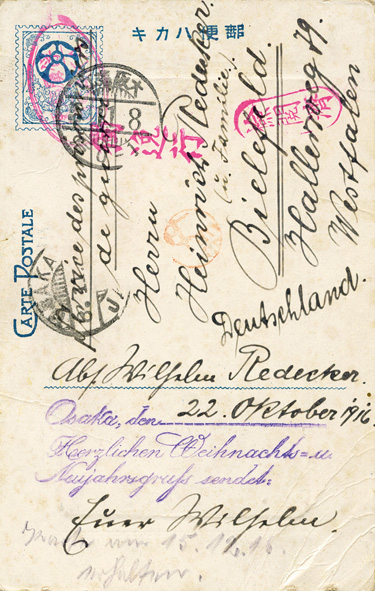 郵便ハカキ
CARTE POSTALE
Service des prisonniers
de guerre
8
Herrn
Heinrich Redecker.
(u. Familie)
Bielefeld.
Hallerweg
Westfalen
Deutschland.
OSAKA
Abs. Wilhelm Redecker.
Osaka, den 22. Oktober 1916
Herzlichen Weihnachts= u.
Neujahrsgruss sendet:
Euer Wilhelm.
am 15.
erhalten.